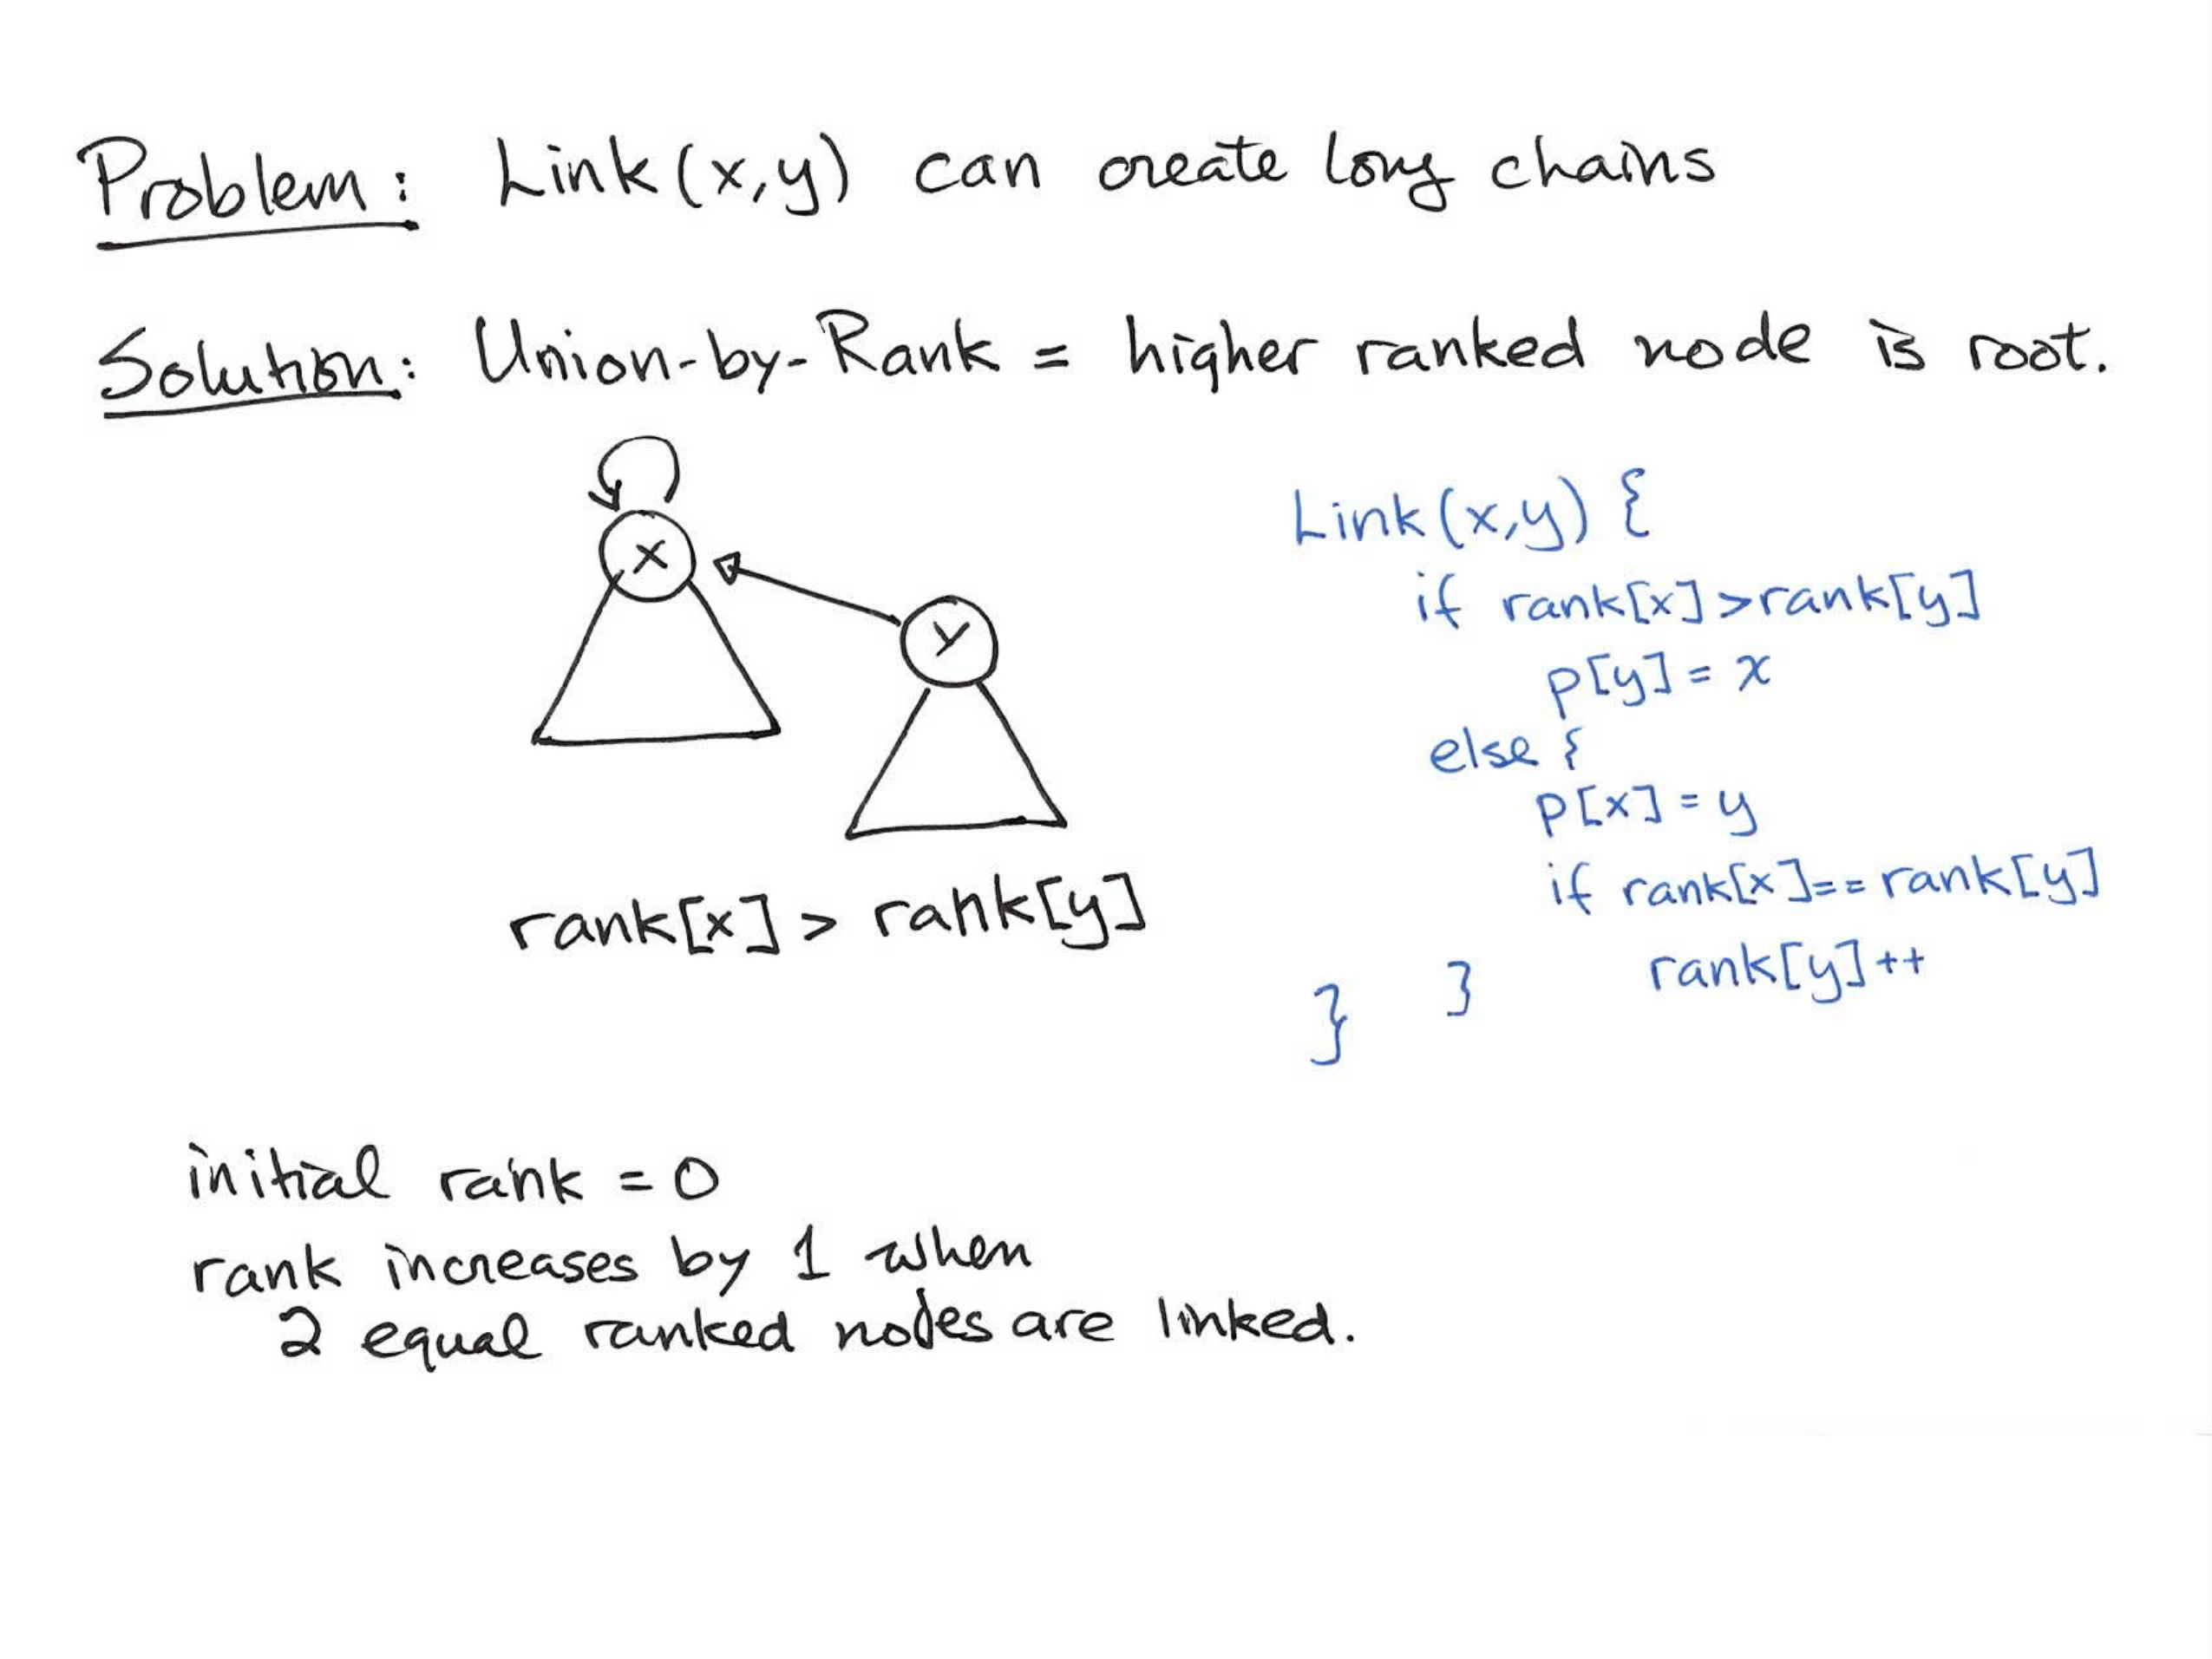 Problem: Link(x,y) can create long chains
Solution: Union-by-Rank = higher ranked node is root.
x
y
rank[x] > rank[y]
Link(x,y) {
if rank[x]>rank[y]
p[y] = x
else {
p[x] = y
if rank[x]==rank[y]
rank[y]++
}
}
initial rank = 0
rank increases by 1 when
2 equal ranked nodes are linked.